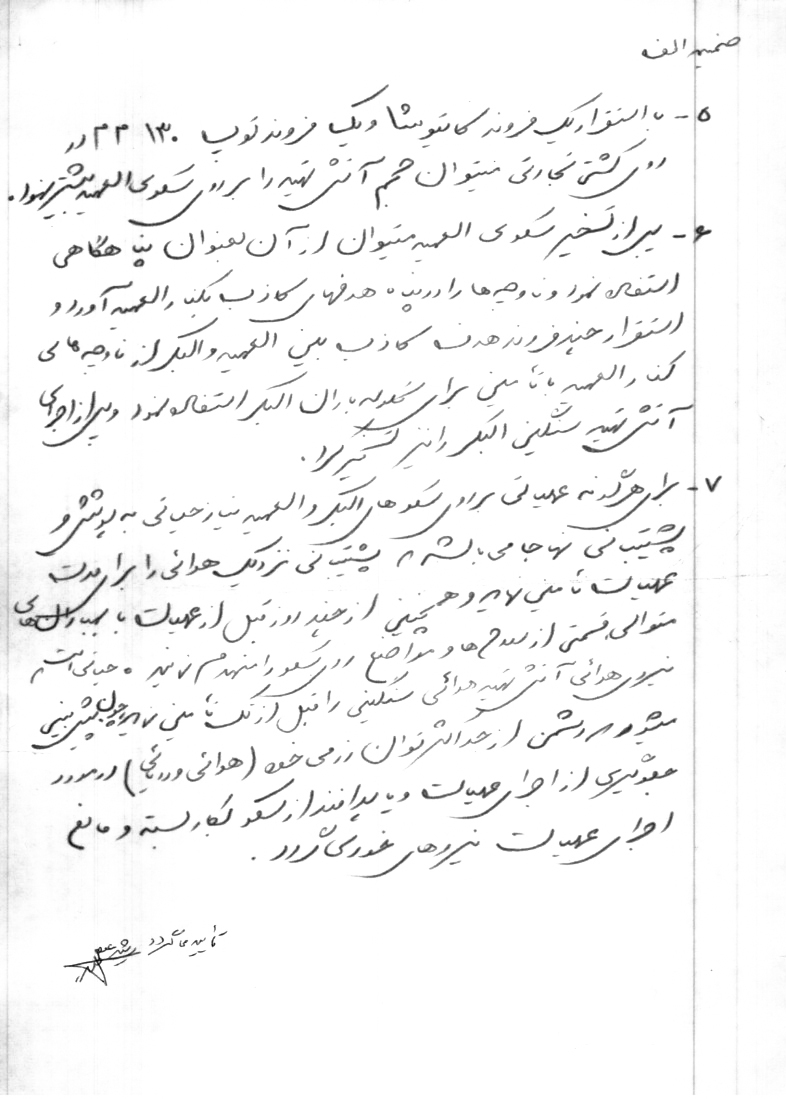 ضمیمه الف
۵- با استقرار یک فروند کاتیوشا و یک فروند توپ ۱۳۰ م م در
روی کشتی تجارتی میتوان حجم آتش تهیه را بر روی سکوی العمیه بیشتر نمود.
۶- پس از تسخیر سکوی العمیه میتوان از آن بعنوان پناهگاهی
استفاده نمود و ناوچه ها را در پناه هدفهای کاذب بکنار العمیه آورد و
استقرار چند فروند هدف کاذب بین العمیه و البکر از ناوچه های
کنار العمیه با تأمین برای گلوله باران البکر استفاده نمود و پس از اجرای
آتش تهیه سنگین البکر را نیز تسخیر کرد.
۷- برای هرگونه عملیاتی بر روی سکوهای البکر و العمیه نیاز حیاتی به پوشش و
پشتیبانی نهاجا می باشد که پشتیبانی نزدیک هوائی را برای مدت
عملیات تأمین نماید و همچنین از چند روز قبل از عملیات با بمبارانهای
متوالی قسمتی از سلاح ها و مواضع روی سکو را منهدم نمایند. حیاتی است که
نیروی هوائی آتش تهیه هوائی سنگینی را قبل از تک تأمین نماید چون پیش بینی
میشود که دشمن از حداکثر توان رزمی خود (هوائی و دریائی) در مورد
جلوگیری از اجرای عملیات و یا پدافند از سکو بکار بسته و مانع
اجرای عملیات نیروهای خودی گردد.
تایید می گردد